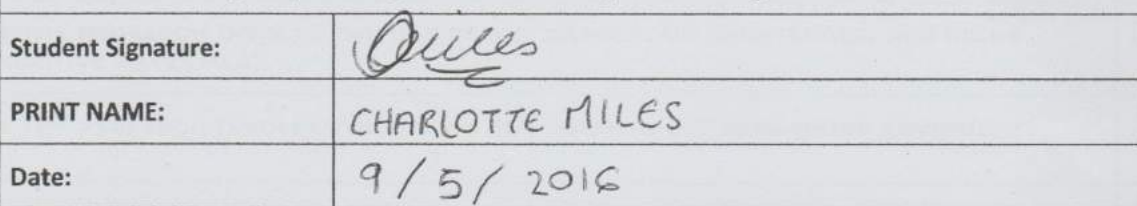 Student Signature:
PRINT NAME: CHARLOTTE MILES
Date: 9/5/2016